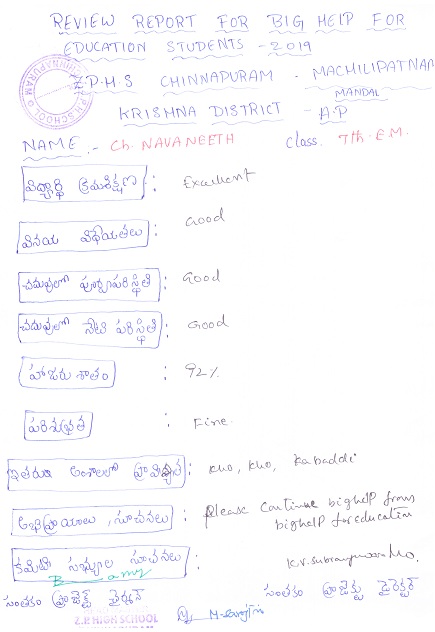 REVIEW REPORT FOR BIG HELP FOR
EDUCATION STUDENTS - 2019
Z.P.H.S CHINNAPURAM - MACHILIPATNAM
MANDAL
KRISHNA DISTRICT - A.P
NAME :- Ch. NAVANEETH class. 7th. E.M.
విద్యార్థి క్రమశిక్షణ : Excellent
వినయ విధేయతలు : Good
చదువులో పూర్వపరిస్థితి : Good
చదువులో నేటి పరిస్థితి : Good
హాజరు శాతం : 92%.
పరిశుభ్రత : Fine.
ఇతరత్రా అంశాలలో ప్రావీణ్యత : kho, kho, Kabaddi
అభిప్రాయాలు, సూచనలు : please continue bighelp from
bighelp for education
కమిటీ సభ్యుల సూచనలు :
సంతకం ప్రాజెక్ట్ సంతకం ప్రాజెక్టు డైరెక్టర్
Z.P. HIGH SCHOOL
CHINNAPURAM